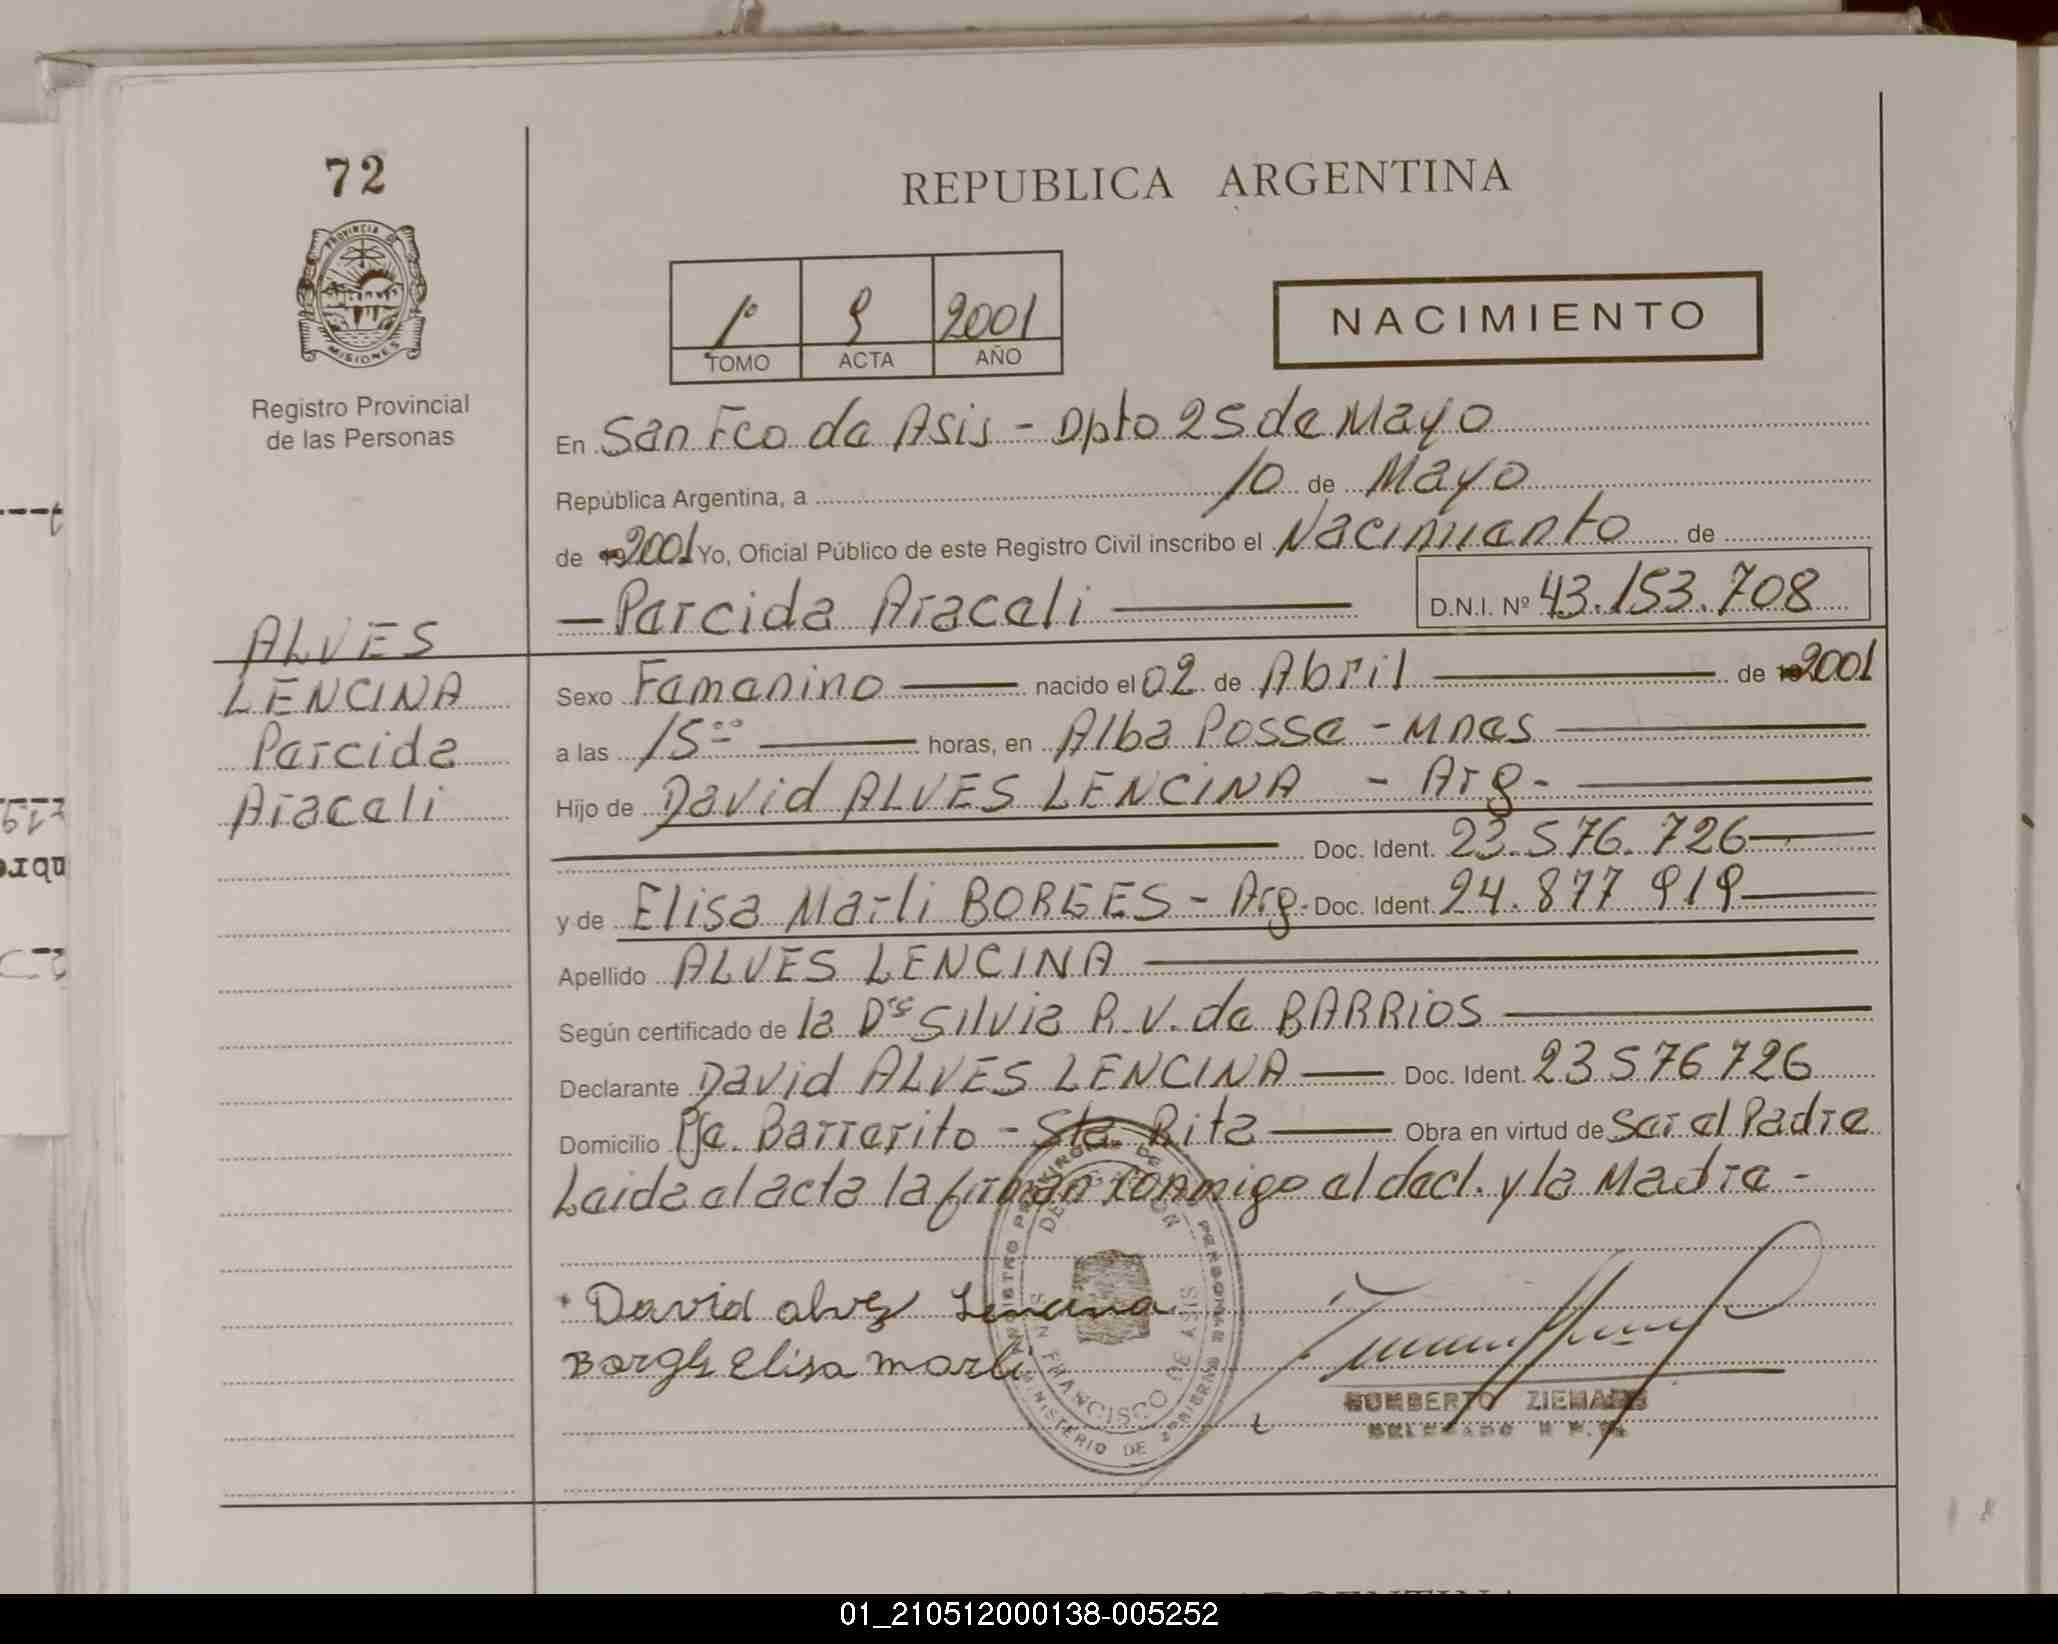 72
REPUBLICA ARGENTINA
PROVINCIA DE
MISIONES
1º 9 2001
TOMO ACTA AÑO
NACIMIENTO
Registro Provincial
de las Personas
En San Fco de Asis - Dpto 25 de Mayo
República Argentina, a 10 de Mayo
de 2001 Yo, Oficial Público de este Registro Civil inscribo el Nacimiento de
- Parcida Araceli D.N.I. Nº 43.153.708
ALVES
LENCINA
Parcida
Araceli
Sexo Femenino nacido el 02 de Abril de 2001
a las 15⁰⁰ horas, en Alba Posse - Mnes
Hijo de David ALVES LENCINA - Arg-
Doc. Ident. 23.576.726
y de Elisa Marli BORGES - Arg- Doc. Ident. 24.877 919
Apellido ALVES LENCINA
Según certificado de la Dra Silvia R.V. de BARRIOS
Declarante David ALVES LENCINA Doc. Ident. 23 576 726
Domicilio Pje. Barrerito - Sta. Rita Obra en virtud de Ser el Padre
Leida el acta la firman conmigo el decl. y la Madre -
David alvez Lencina
Borges Elisa marli
SAN FRANCISCO DE ASIS
MINISTERIO DE GOBIERNO
HUMBERTO ZIEMANN
DELEGADO R.P.
01_210512000138-005252